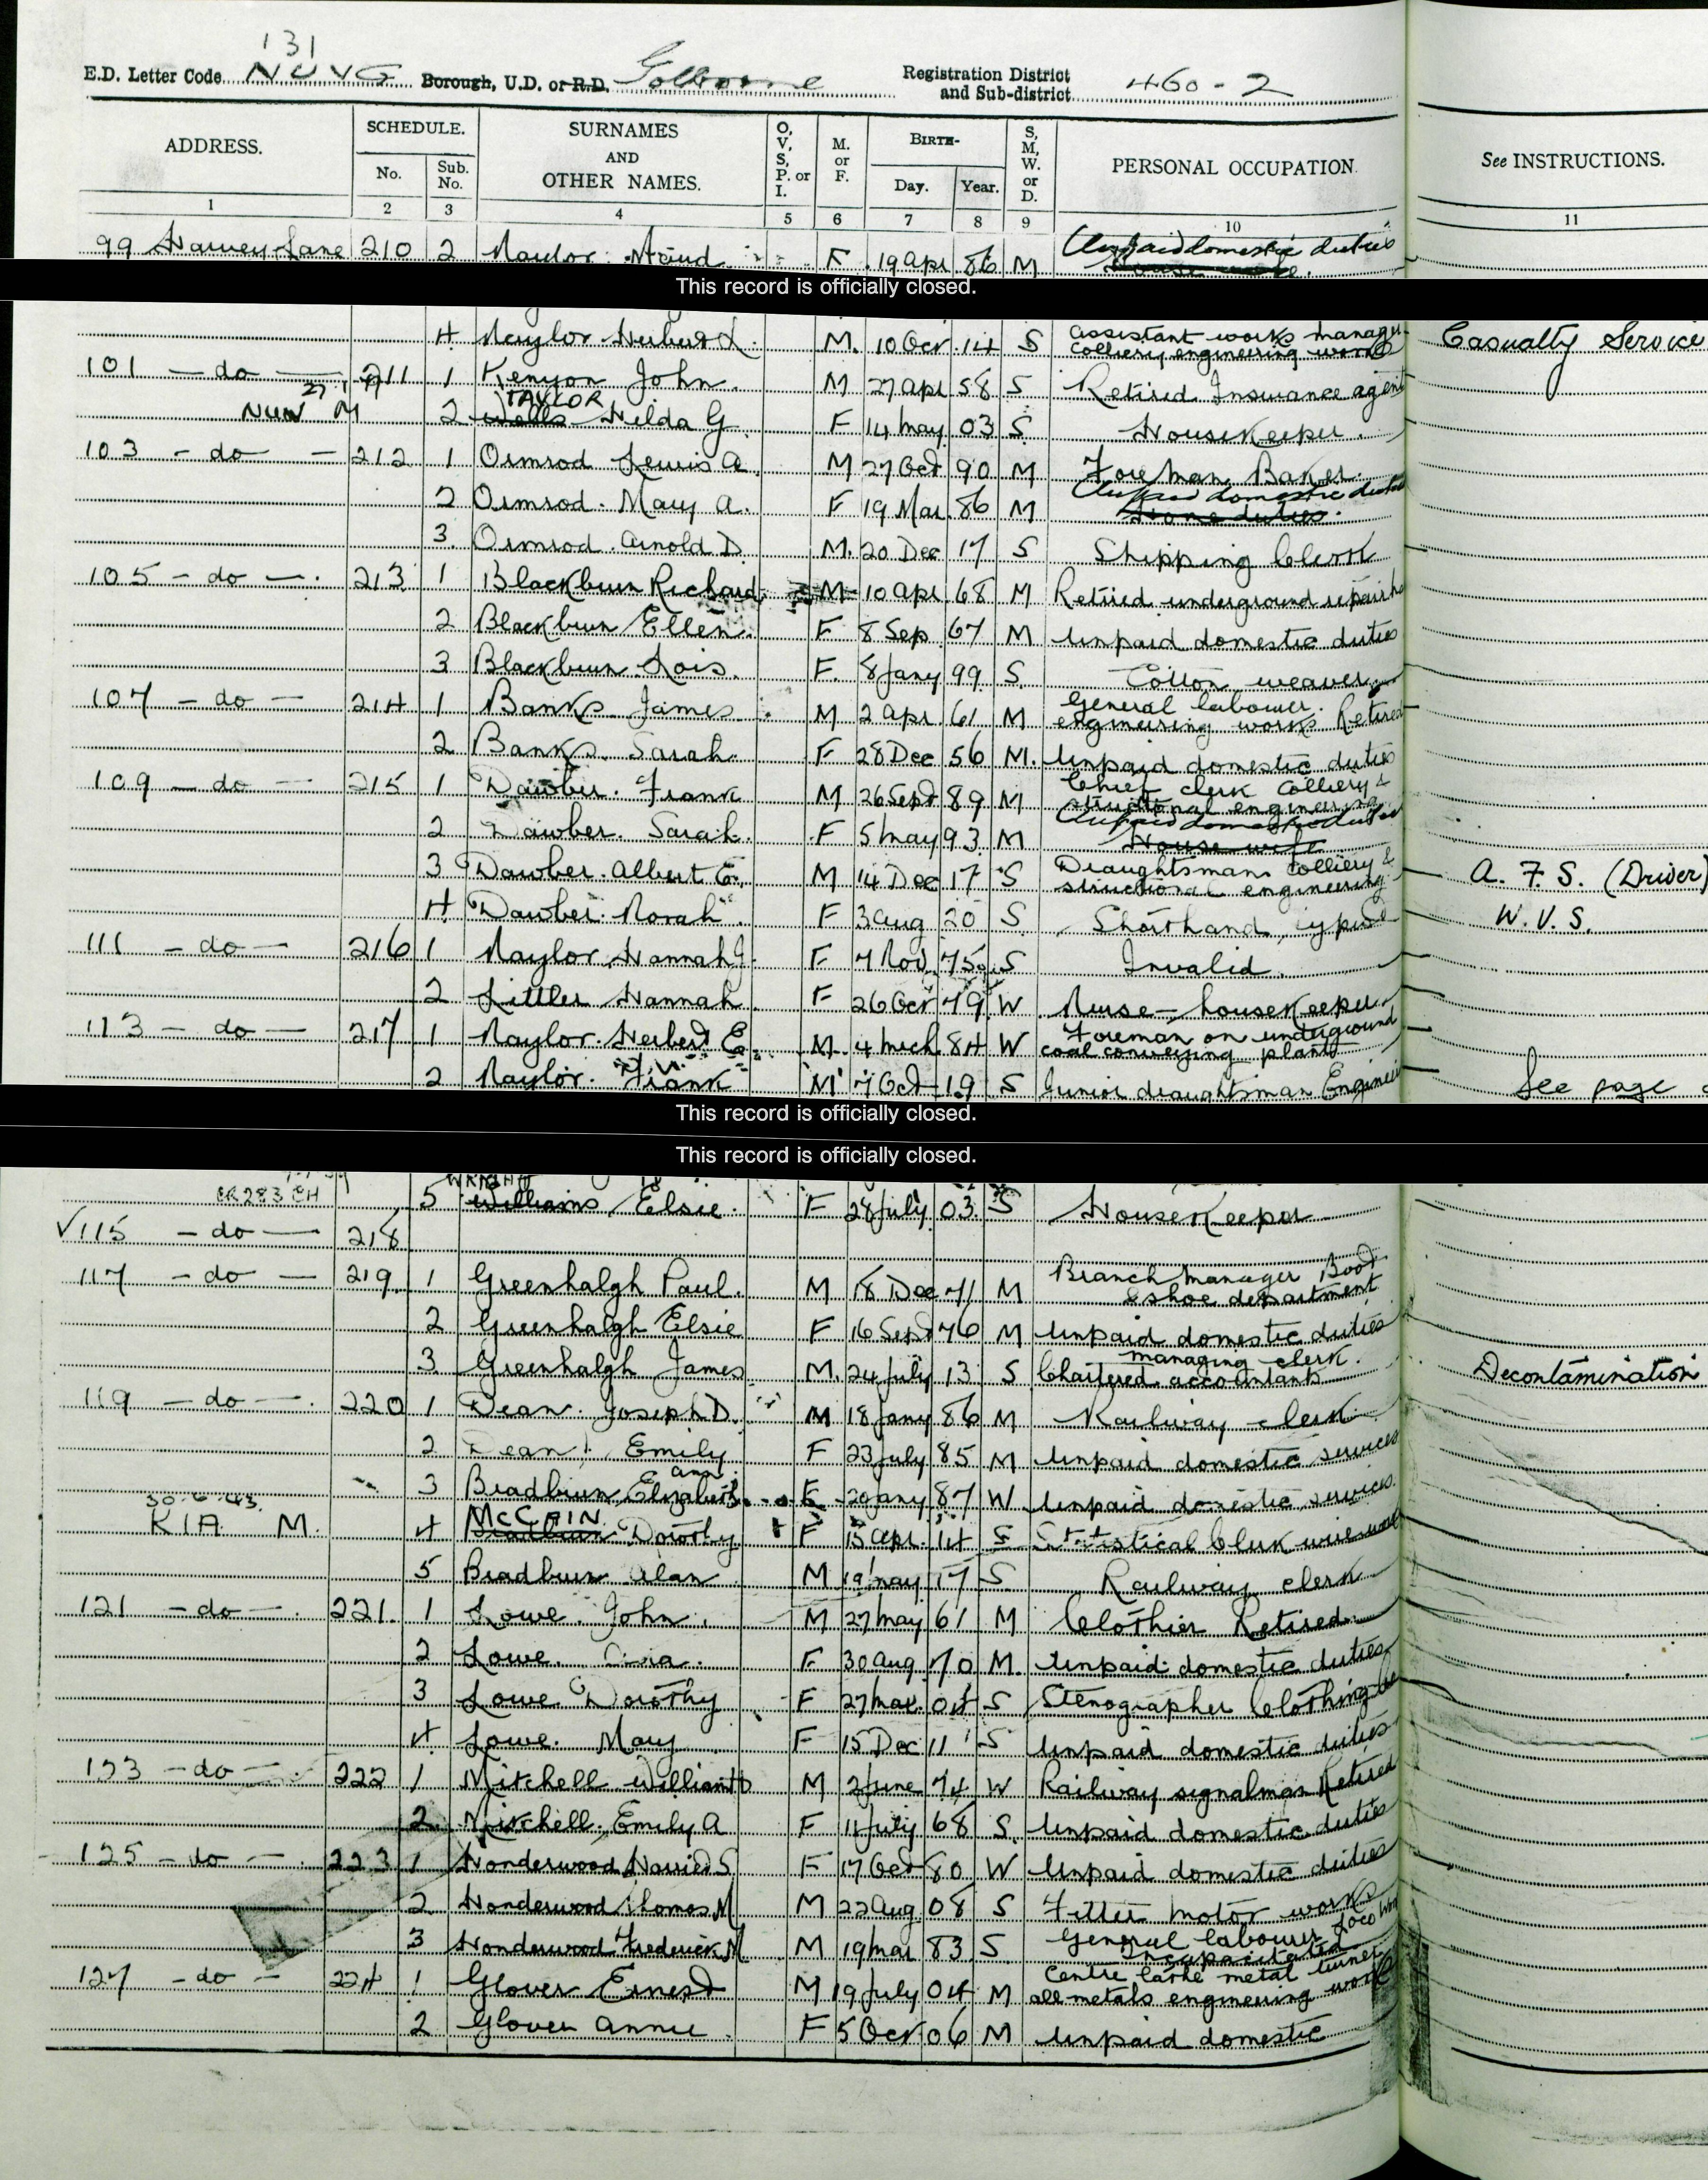 131
E.D. Letter Code NUVG Borough, U.D. or R.D. Golborne Registration District and Sub-district 460-2
ADDRESS. SCHEDULE. No. Sub. No. SURNAMES AND OTHER NAMES. O, V, S, P. or I. M. or F. BIRTH- Day. Year. S, M, W. or D. PERSONAL OCCUPATION. See INSTRUCTIONS.
1 2 3 4 5 6 7 8 9 10 11
99 Harvey Lane 210 2 Naylor Maud F 19 Apr 86 M Unpaid domestic duties
This record is officially closed.
4 Naylor Herbert L. M. 10 Oct 14 S Assistant works manager Colliery engineering works Casualty Service
101 — do — 211 1 Kenyon John M 27 Apr 58 S Retired Insurance agent
TAYLOR
NUN M 2 Wells Hilda G F 14 May 03 S Housekeeper.
103 — do — 212 1 Ormrod Lewis A. M 27 Oct 90 M Foreman Baker.
2 Ormrod. Mary A. F 19 Mar 86 M Unpaid domestic duties Home duties.
3. Ormrod. Arnold D M. 20 Dec 17 S Shipping Clerk
105 — do — 213 1 Blackburn Richard M 10 Apr 68 M Retired underground repair
2 Blackburn Ellen. F 8 Sep 67 M Unpaid domestic duties
3 Blackburn Lois. F. 8 Jany 99 S. Cotton weaver
107 — do — 214 1 Banks James M 2 Apr 61 M General labourer. engineering works Retired
2 Banks. Sarah. F 28 Dec 56 M. Unpaid domestic duties
109 — do — 215 1 Dawber. Frank M 26 Sept 89 M Chief clerk Colliery & structional engineering
2 Dawber. Sarah. F 5 May 93 M Unpaid domestic duties House wife
3 Dawber. Albert G. M 14 Dec 17 S Draughtsman Colliery & structional engineering A. F. S. (Driver)
4 Dawber. Norah F 3 Aug 20 S Shorthand typist W. V. S.
111 — do — 216 1 Naylor Hannah J. F 7 Nov 75 S Invalid.
2 Littler Hannah F 26 Oct 79 W Nurse — housekeeper
113 — do — 217 1 Naylor. Herbert E. M. 4 Mch 84 W Foreman on underground coal conveying plants
2 Naylor. Frank M 7 Oct 19 S Junior draughtsman See page
This record is officially closed.
This record is officially closed.
WRIGHT
CR283 CH 5 Williams Elsie. F 28 July 03 S Housekeeper
√115 — do — 218
117 — do — 219 1 Greenhalgh Paul. M 18 Dec 71 M Branch Manager Boot & shoe department
2 Greenhalgh Elsie F 16 Sept 76 M Unpaid domestic duties
3 Greenhalgh James M. 24 July 13 S managing clerk. Chartered accountants Decontamination
119 — do — 220 1 Dean. Joseph D. M 18 Jany 86 M Railway clerk
2 Dean. Emily F 23 July 85 M Unpaid domestic services
3 Bradburn Elizabeth Ann F 87 W Unpaid domestic services
30.6.43. McCAIN
KIA M. 4 Bradburn Dorothy F 15 Apr. 14 S Statistical Clerk
5 Bradburn Alan M 19 May 17 S Railway clerk
121 — do — 221 1 Lowe. John. M 27 May 61 M Clothier Retired
2 Lowe. F 30 Aug 70 M. Unpaid domestic duties
3 Lowe Dorothy F 27 Mar. 04 S Stenographer Clothing
4 Lowe. Mary F 15 Dec 11 S Unpaid domestic duties
123 — do — 222 1 Mitchell William H M 2 June 74 W Railway signalman Retired
2 Mitchell. Emily A F 11 July 68 S. Unpaid domestic duties
125 — do — 223 1 Honderwood Harriet S. F 17 Oct 80 W Unpaid domestic duties
2 Honderwood Thomas M M 22 Aug 08 S Fitter motor works
3 Honderwood Frederick M M 19 Mar 83 S General labourer Loco works Incapacitated
127 — do — 224 1 Glover Ernest M 19 July 04 M Centre lathe metal turner all metals engineering works
2 Glover Annie. F 5 Oct 06 M Unpaid domestic